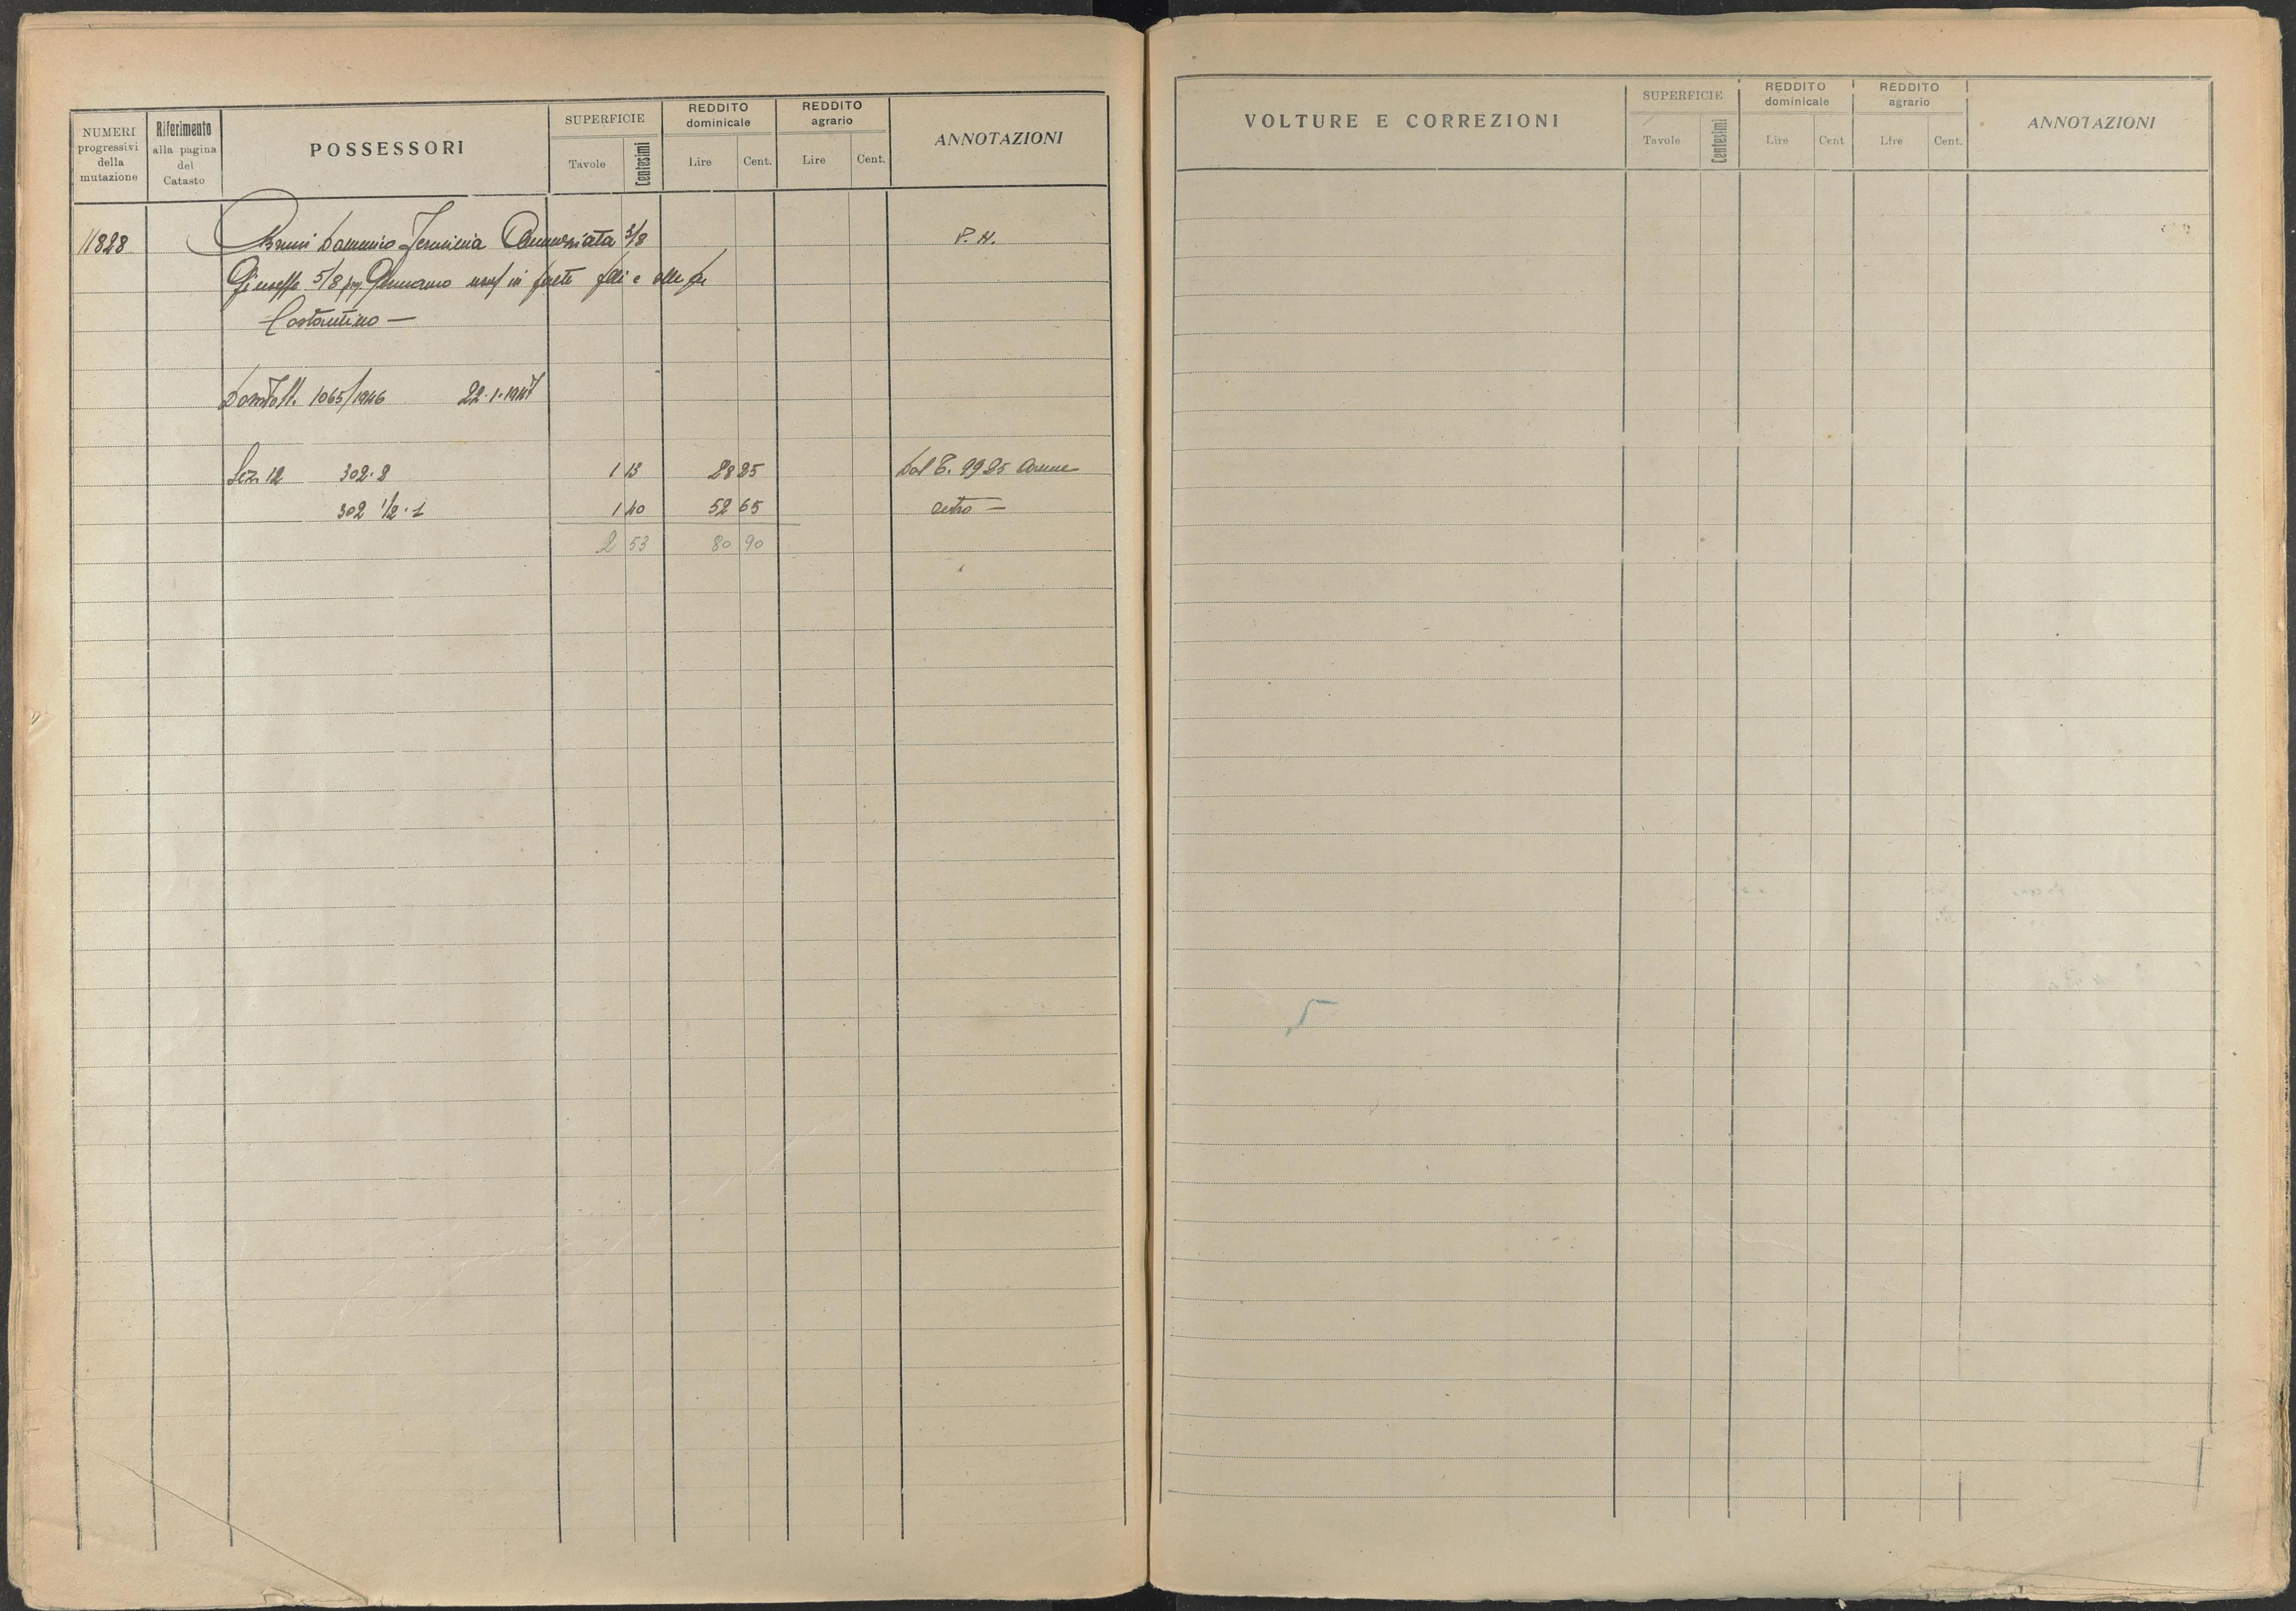 NUMERI progressivi della mutazione
Riferimento alla pagina del Catasto
POSSESSORI
SUPERFICIE
Tavole
Centesimi
REDDITO dominicale
Lire
Cent.
REDDITO agrario
Lire
Cent.
ANNOTAZIONI
11828
Bruni Domenico Annunziata 3/8
P. N.
Giuseppe 5/8 Germano usuf in parte flli e
Costantino —
1065/1946 22.1.1947
Sez 12 302.2 1 13 28 25 Dal C. 9925
302 1/2.1 1 40 52 65 —
2 53 80 90
VOLTURE E CORREZIONI
SUPERFICIE
Tavole
Centesimi
REDDITO dominicale
Lire
Cent
REDDITO agrario
Lire
Cent.
ANNOTAZIONI